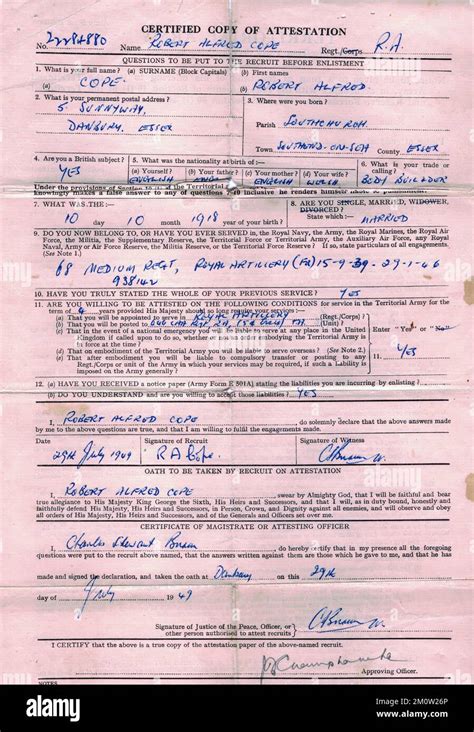 CERTIFIED COPY OF ATTESTATION
No. 22284880 Name ROBERT ALFRED COPE Regt./Corps R.A.
QUESTIONS TO BE PUT TO THE RECRUIT BEFORE ENLISTMENT
1. What is your full name? (a) SURNAME (Block Capitals) (b) First names
COPE. ROBERT ALFRED.
2. What is your permanent postal address? 3. Where were you born?
5. SUNNYWAY, Parish SOUTHCHURCH.
DANBURY. ESSEX Town SOUTHEND-ON-SEA County ESSEX
4. Are you a British subject? 5. What was the nationality at birth of:— 6. What is your trade or calling?
YES (a) Yourself? ENGLISH (b) Your father? ENGLISH (c) Your mother? ENGLISH (d) Your wife? WELSH BODY BUILDER
Under the provisions of Section of the Territorial
knowingly makes a false answer to any of questions inclusive he renders himself liable to punishment.
7. WHAT WAS THE:— 8. ARE YOU SINGLE, MARRIED, WIDOWER, DIVORCED?
10 day 10 month 1918 year of your birth? State which:— MARRIED
9. DO YOU NOW BELONG TO, OR HAVE YOU EVER SERVED in, the Royal Navy, the Army, the Royal Marines, the Royal Air
Force, the Militia, the Supplementary Reserve, the Territorial Force or Territorial Army, the Auxiliary Air Force, any Royal
Naval, Army or Air Force Reserve, or the Home Guard? If so, state particulars of all engagements.
(See Note 1.)
68 MEDIUM REGT, ROYAL ARTILLERY 15-9-39 - 29-1-46
938142
10. HAVE YOU TRULY STATED THE WHOLE OF YOUR PREVIOUS SERVICE? YES
11. ARE YOU WILLING TO BE ATTESTED ON THE FOLLOWING CONDITIONS for service in the Territorial Army for the
term of 4 years provided His Majesty should so long require your services:—
(a) That you will be appointed to serve in ROYAL ARTILLERY (Regt./Corps)?
(b) That you will be posted to TA (Unit)?
(c) That in the event of a national emergency you will be liable to serve at any place in the United
Kingdom if called upon to do so, whether or not the Territorial Army is embodied at
its force at the time?
(d) That on embodiment of the Territorial Army you will be liable to serve overseas? (See Note 2.)
That after embodiment you will be liable to compulsory transfer or posting to any
Regt./Corps or unit of the Army in which your services may be required, if such a Liability is
imposed on the Army generally?
Enter "Yes" or "No"
11. YES
12. (a) HAVE YOU RECEIVED a notice paper (Army Form E 501A) stating the liabilities you are incurring by enlisting? YES
(b) DO YOU UNDERSTAND and are you willing to accept those liabilities? YES
I, ROBERT ALFRED COPE, do solemnly declare that the above answers made
by me to the above questions are true, and that I am willing to fulfil the engagements made.
Date Signature of Recruit Signature of Witness
29th July 1949 R A Cope.
OATH TO BE TAKEN BY RECRUIT ON ATTESTATION
I, ROBERT ALFRED COPE, swear by Almighty God, that I will be faithful and bear
true allegiance to His Majesty King George the Sixth, His Heirs and Successors, and that I will, as in duty bound, honestly and
faithfully defend His Majesty, His Heirs and Successors, in Person, Crown, and Dignity against all enemies, and will observe and obey
all orders of His Majesty, His Heirs and Successors, and of the Generals and Officers set over me.
CERTIFICATE OF MAGISTRATE OR ATTESTING OFFICER
I, Charles Stewart, do hereby certify that in my presence all the foregoing
questions were put to the recruit above named, that the answers written against them are those which he gave to me, and that he
made and signed the declaration, and taken the oath at Danbury on this 29th
day of July 1949
Signature of Justice of the Peace, Officer, or
other person authorised to attest recruits
I CERTIFY that the above is a true copy of the attestation paper of the above-named recruit.
Approving Officer.
NOTES
alamy
Image ID: 2M0W26P
www.alamy.com